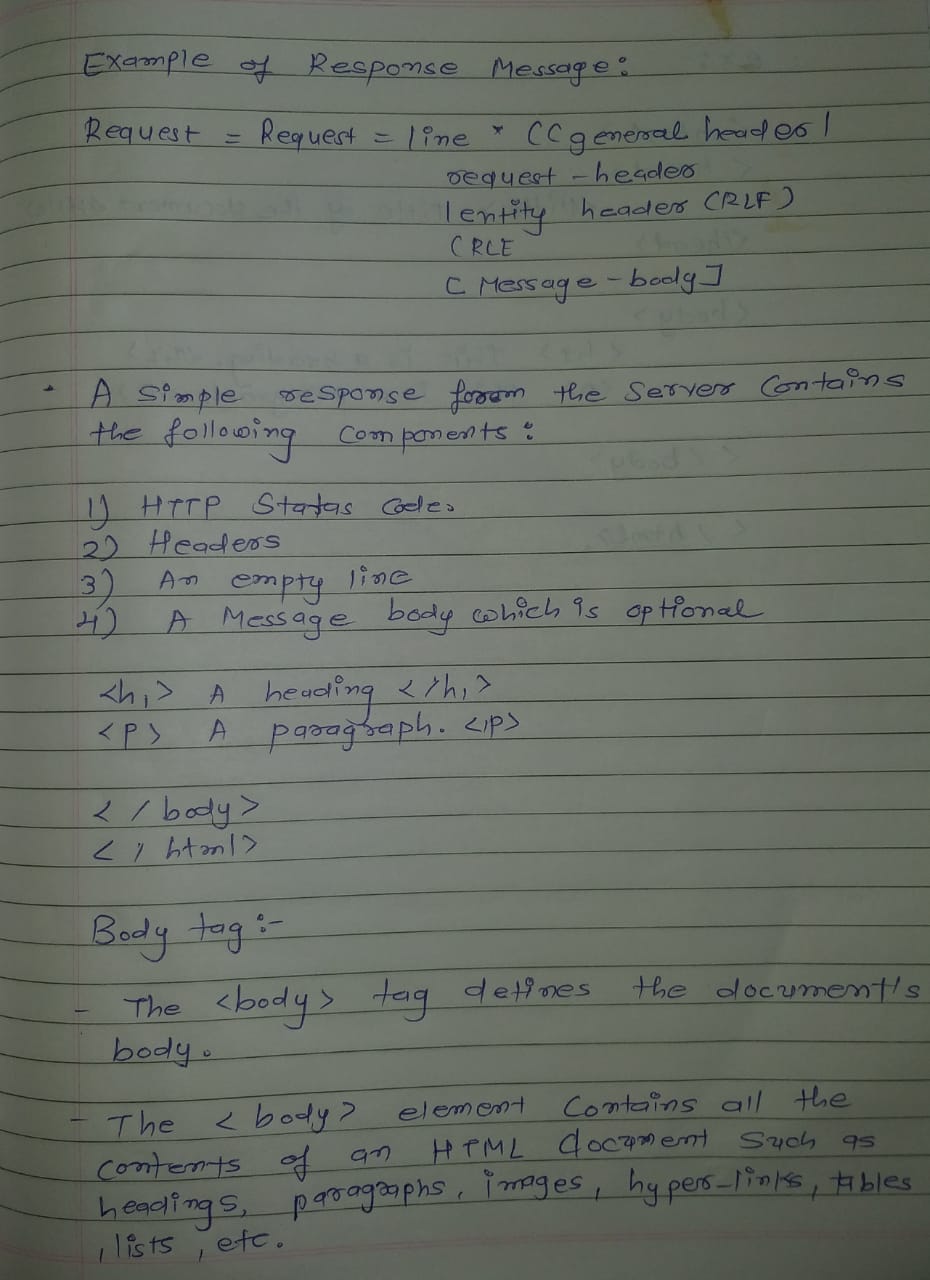 Example of Response Message:
Request = Request = line * ((general header |
request - header
| entity header CRLF)
CRLF
[ Message - body ]
A Simple response from the Server Contains
the following Components :
1) HTTP Status Code.
2) Headers
3) An empty line
4) A Message body which is optional
<h1> A heading </h1>
<p> A paragraph. </p>
</body>
</html>
Body tag :-
- The <body> tag defines the document's
body.
- The <body> element Contains all the
contents of an HTML document Such as
headings, paragraphs, images, hyper-links, tables
, lists , etc.